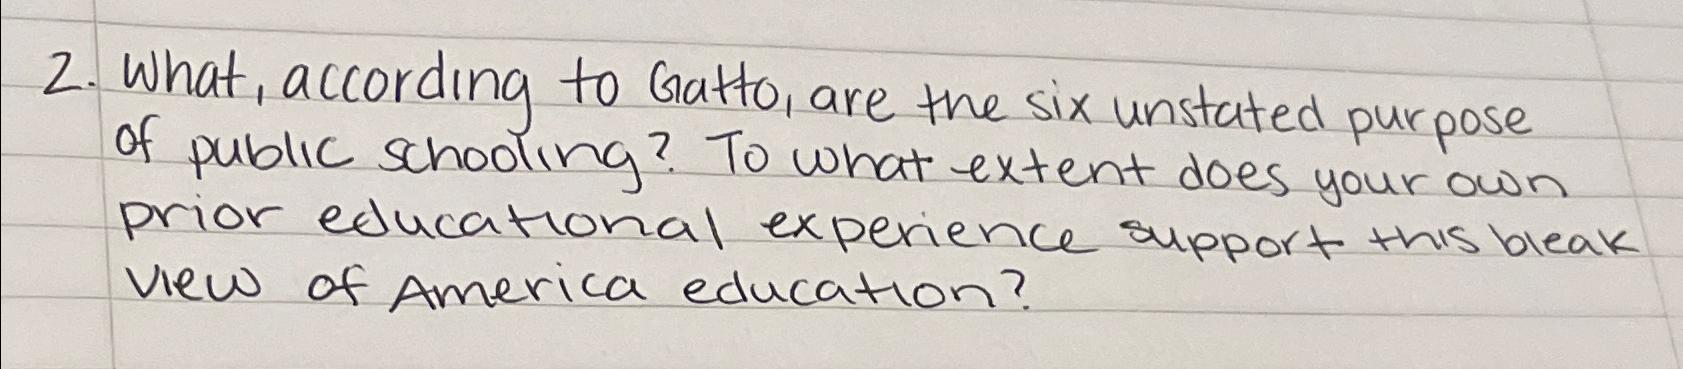 2. What, according to Gatto, are the six unstated purpose
of public schooling? To what extent does your own
prior educational experience support this bleak
view of America education?